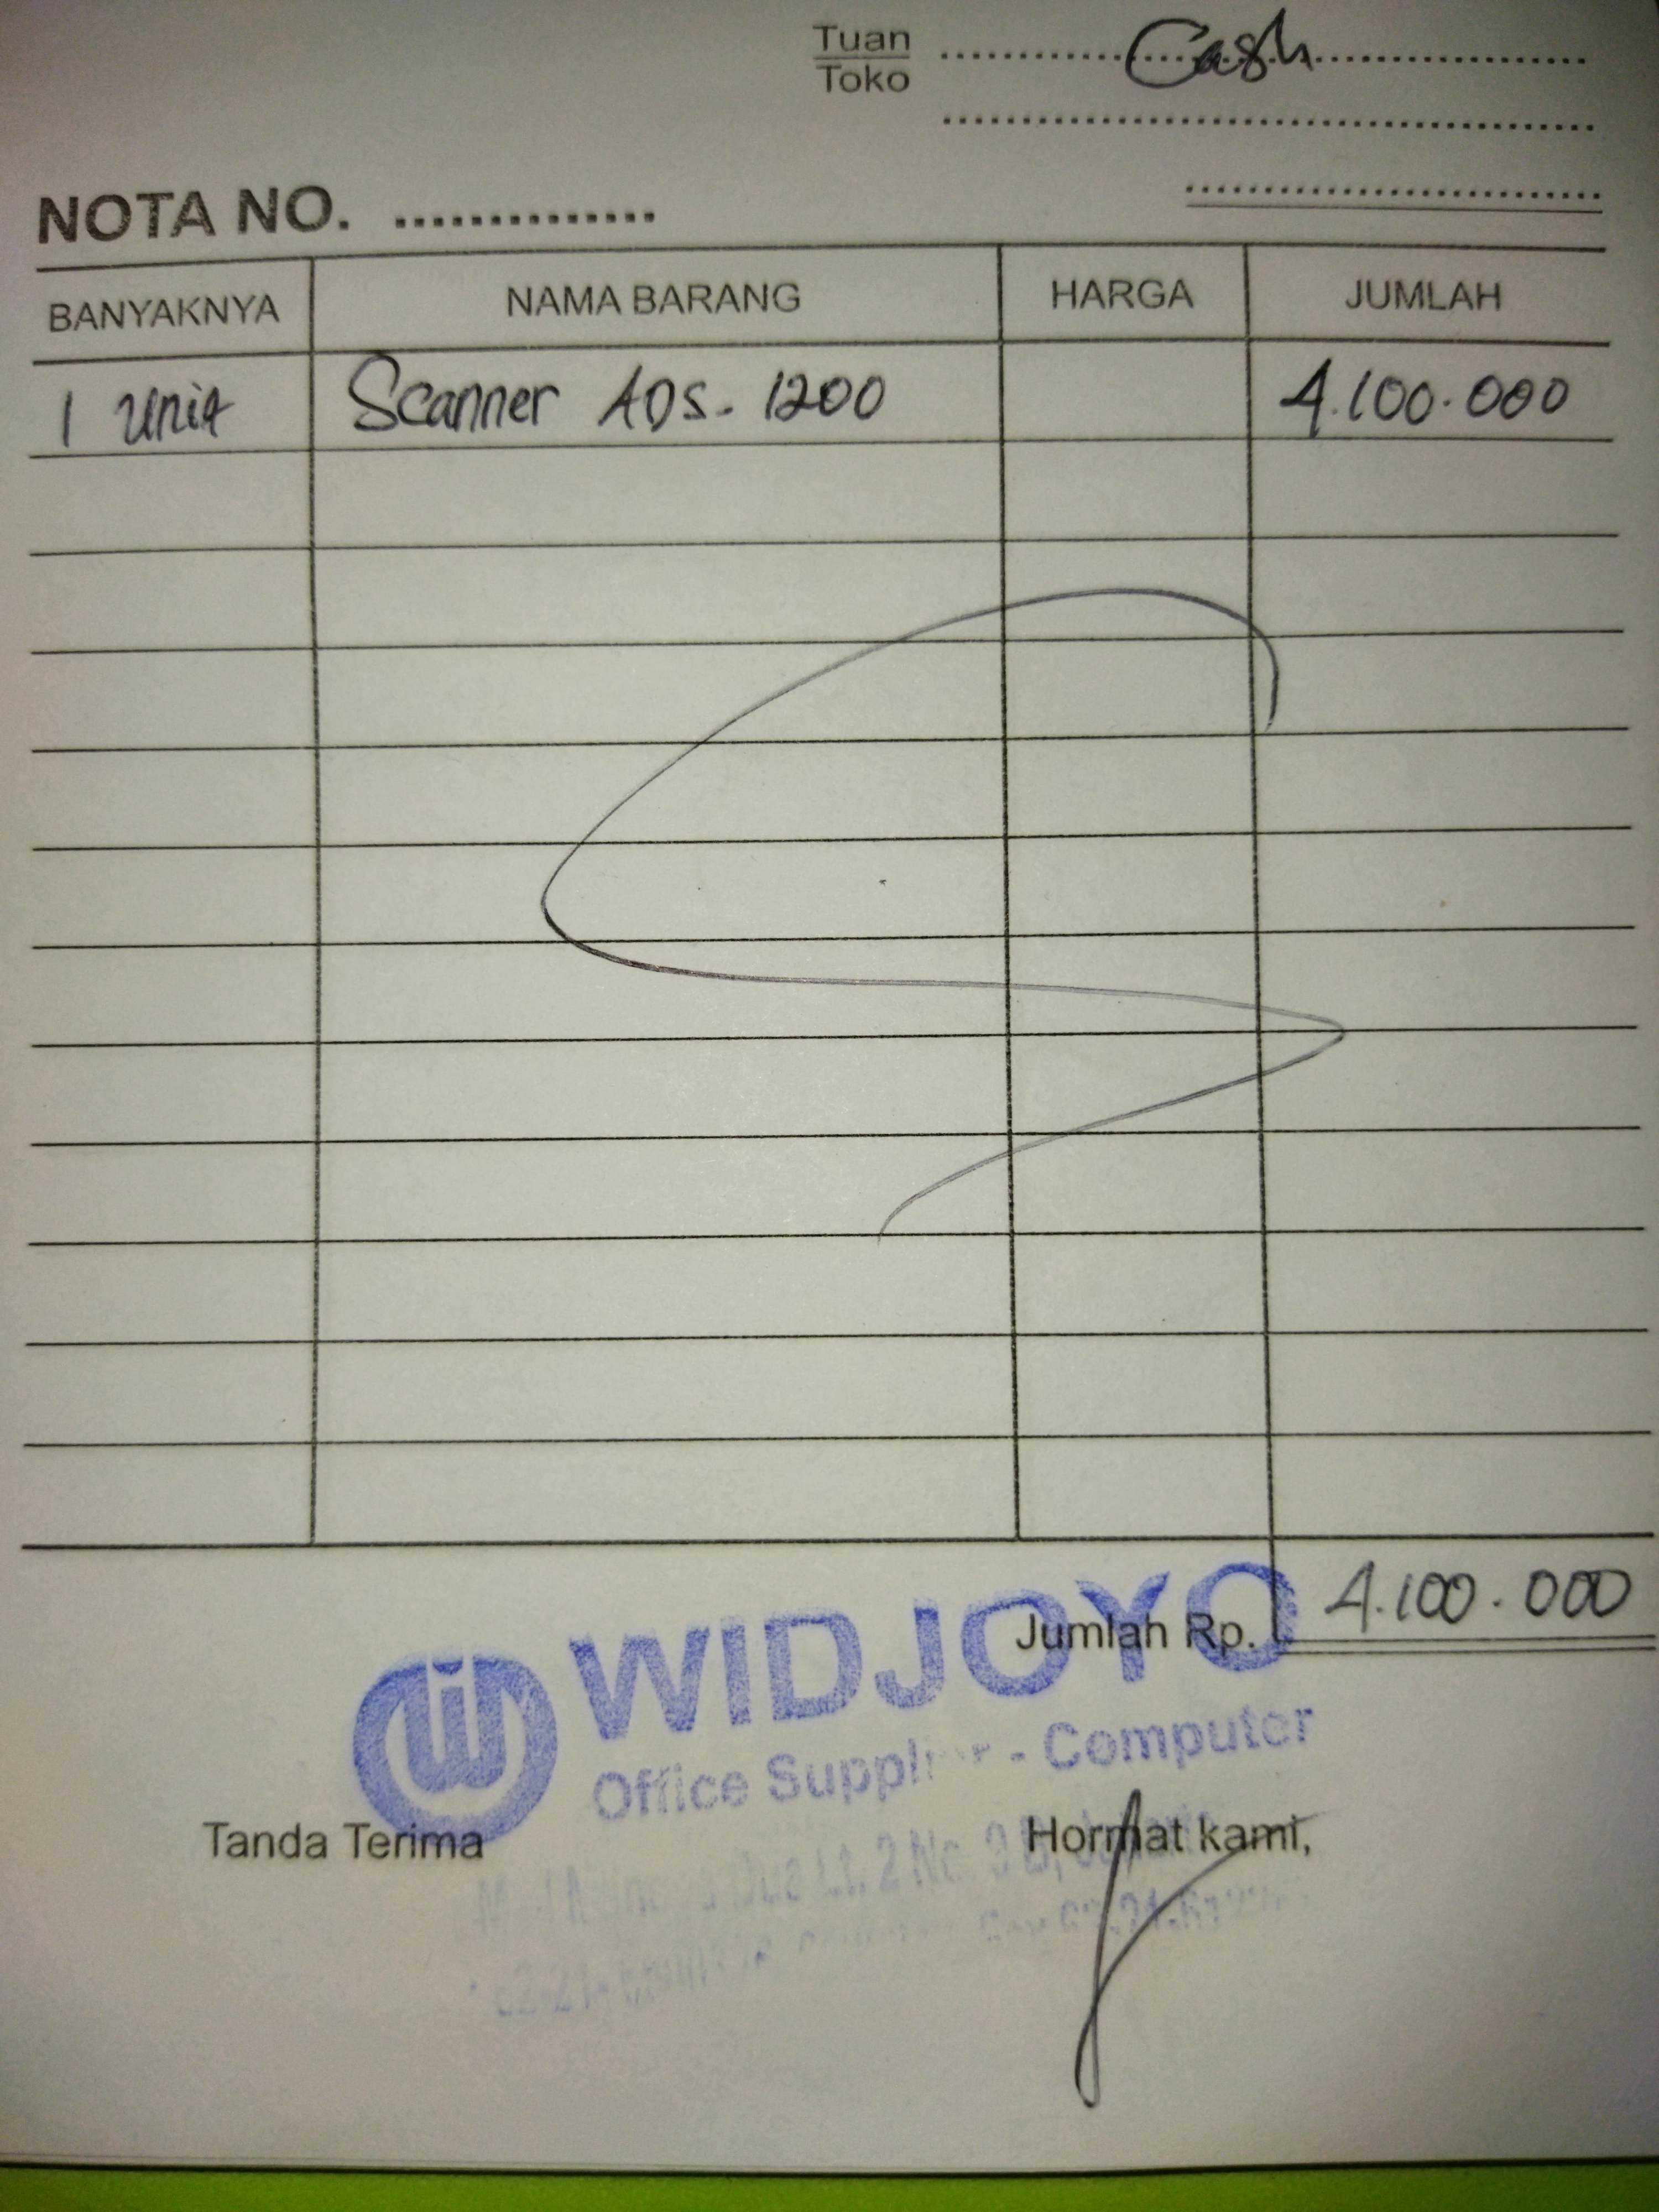 Tuan Cash
Toko
NOTA NO. ..............
BANYAKNYA NAMA BARANG HARGA JUMLAH
1 Unit Scanner ADS- 1200 4.100.000
Jumlah Rp. 4.100.000
WIDJOYO
Office Supplier - Computer
Tanda Terima Hormat kami,
Lt. 2 No.